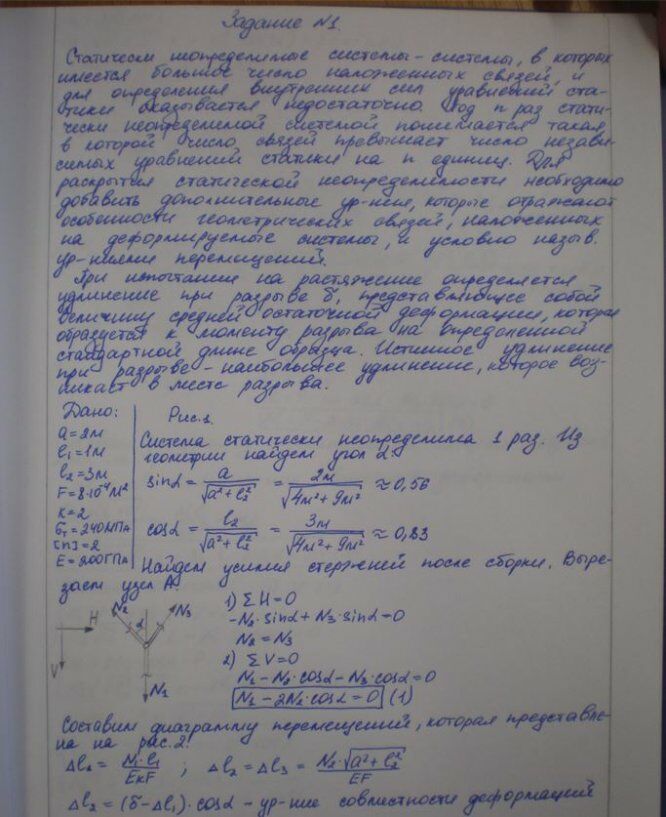 Задание №1.
Статически неопределимые системы - системы, в которых
имеется большое число наложенных связей, и
для определения внутренних сил уравнений ста-
тики оказывается недостаточно. Под n раз стати-
чески неопределимой системой понимается такая
в которой число связей превышает число незави-
симых уравнений статики на n единиц. Для
раскрытия статической неопределимости необходимо
добавить дополнительные ур-ния, которые отражают
особенности геометрических связей, наложенных
на деформируемые системы, и условно назыв.
ур-ниями перемещений.
При испытании на растяжение определяется
удлинение при разрыве δ, представляющее собой
величину средней остаточной деформации, которая
образуется к моменту разрыва на определенной
стандартной длине образца. Истинное удлинение
при разрыве - наибольшее удлинение, которое воз-
никает в месте разрыва.
Дано:
a=2м
l₁=1м
l₂=3м
F=8·10⁻⁴м²
k=2
σт=240МПа
[n]=2
E=200ГПа
Рис.1.
Система статически неопределима 1 раз. Из
геометрии найдем угол α:
sinα = a/√(a²+l₂²) = 2м/√(4м²+9м²) ≈ 0,56
cosα = l₂/√(a²+l₂²) = 3м/√(4м²+9м²) ≈ 0,83
Найдем усилия стержней после сборки. Выре-
заем узел A:
H
V
N₂
α
N₃
N₁
1) ΣH=0
-N₂·sinα+N₃·sinα=0
N₂=N₃
2) ΣV=0
N₁-N₂·cosα-N₃·cosα=0
N₁-2N₂·cosα=0 (1)
Составим диаграмму перемещений, которая представле-
на на рис.2:
Δl₁ = N₁·l₁/EkF ; Δl₂=Δl₃ = N₂·√(a²+l₂²)/EF
Δl₂ = (δ-Δl₁)·cosα - ур-ние совместности деформаций